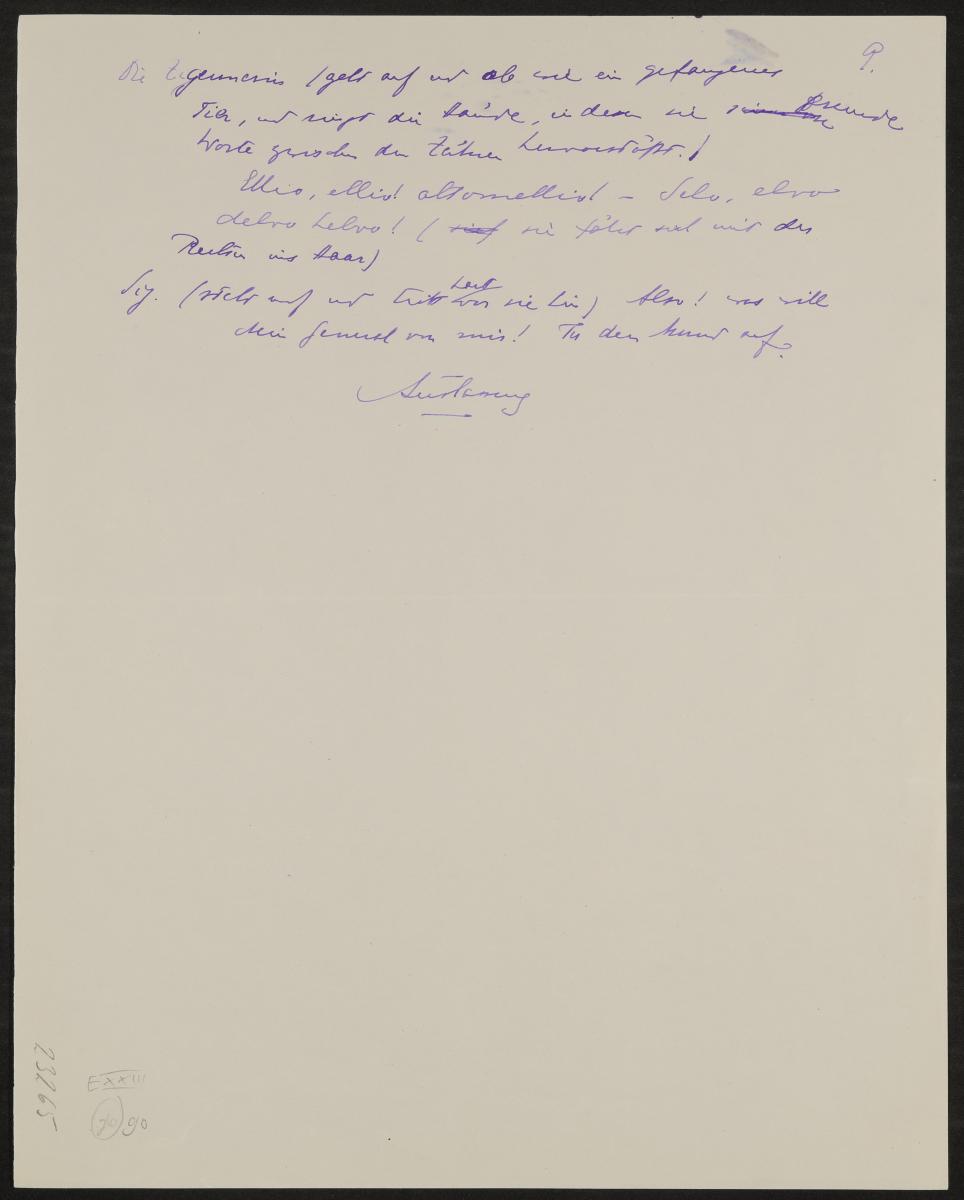 9.
Die Zigeunerin (geht auf und ab wie ein gefangenes
Tier, und ringt die Hände, indem sie fremde
Worte zwischen den Zähnen hervorstößt.)
Ellio, ellio! altomellio! – Selo, elvo
delvo helvo! (sie fährt sich mit der
Rechten ins Haar)
Sig. (steht auf und tritt hart vor sie hin) Also! was will
dein General von mir! Tu den Mund auf.
Auslassung
23265
EXXIII
90 90